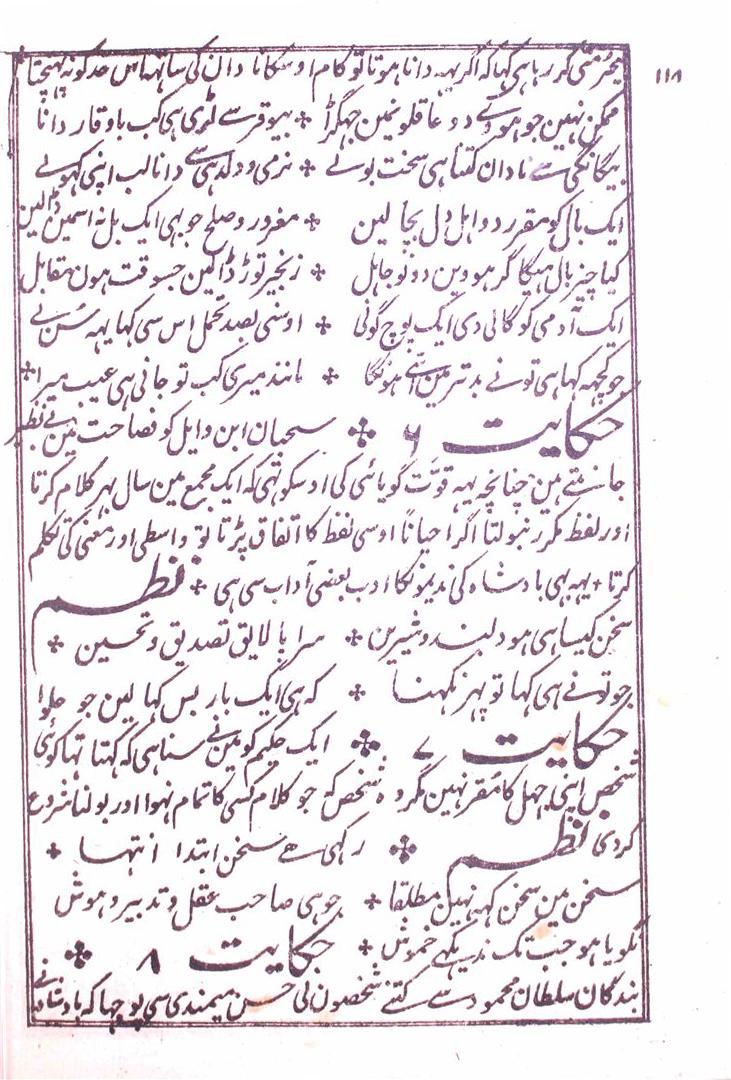 ۱۱۸
بیحرمتی کر رہا ہی کہا کہ اگر یہہ دانا ہوتا تو کام اوسکا نادان کی ساتہہ اس حد کو نہ پہنچتا
ممکن نہین جو ہووے دو عاقلونمین جہگڑا ÷ بیوقر سے لڑی ہی کب باوقار دانا
بیگانگی سے نادان کتنا ہی سخت بولے ÷ نرمی و دلدہی سے دانا لب اپنی کہولے
ایک بال کو مقرر دو اہل دل بچا لین ÷ مغرور و صلح جو بہی ایک بل نہ اسمین ڈالین
کیا چیز بال ہیگا گر ہووین دونو جاہل ÷ زنجیر توڑ ڈالین جسوقت ہون مقابل
ایک آدمی کو گالی دی ایک پوچ گو نی ÷ اوسنی بصد تحمل اس سی کہا یہہ سن کے
جو کچہہ کہا ہی تونے بدتر مین اسّے ہونگا ÷ مانند میری کب تو جانی ہی عیب میرا ÷
حکایت ۶ ÷ سحبان ابن وایل کو فصاحت مین بے نظیر
جانتے ہین چنانچہ یہہ قوّت گویائی کی اوسکو تہی کہ ایک مجمع مین سال بہر کلام کرتا
اور لفظ مکرر نبولتا اگر احیاناً اوسی لفظ کا اتفاق پڑتا تو واسطی اور معنی کی تکلم
کرتا ÷ یہہ بہی بادشاہ کی ندیمونکا ادب بعضی آداب سی ہی ÷ نظم
سخن کیسا ہی ہو دلبند و شیرین ÷ سراپا لایق تصدیق و تحسین ÷
جو تونے ہی کہا تو پہر نکہنا ÷ کہ ہی ایک بار بس کہا لین جو حلوا
حکایت ۷ ÷ ایک حکیم کو مین نے سنا ہی کہ کہتا تہا کوئی
شخص اپنی جہل کا مقر نہین مگر وہ شخص کہ جو کلام کسی کا تمام نہوا اور بولنا شروع
کردی نظم ÷ رکہی ہے سخن ابتدا انتہا ÷
سخن مین سخن کہہ نہین مطلقا ÷ جو ہی صاحب عقل و تدبیر و ہوش
نگویا ہو جب تک ندیکہے خموش ÷ حکایت ۸ ÷
بندگان سلطان محمود سے کتنے شخصون نی حسن میمندی سی پوچہا کہ بادشاہ نے